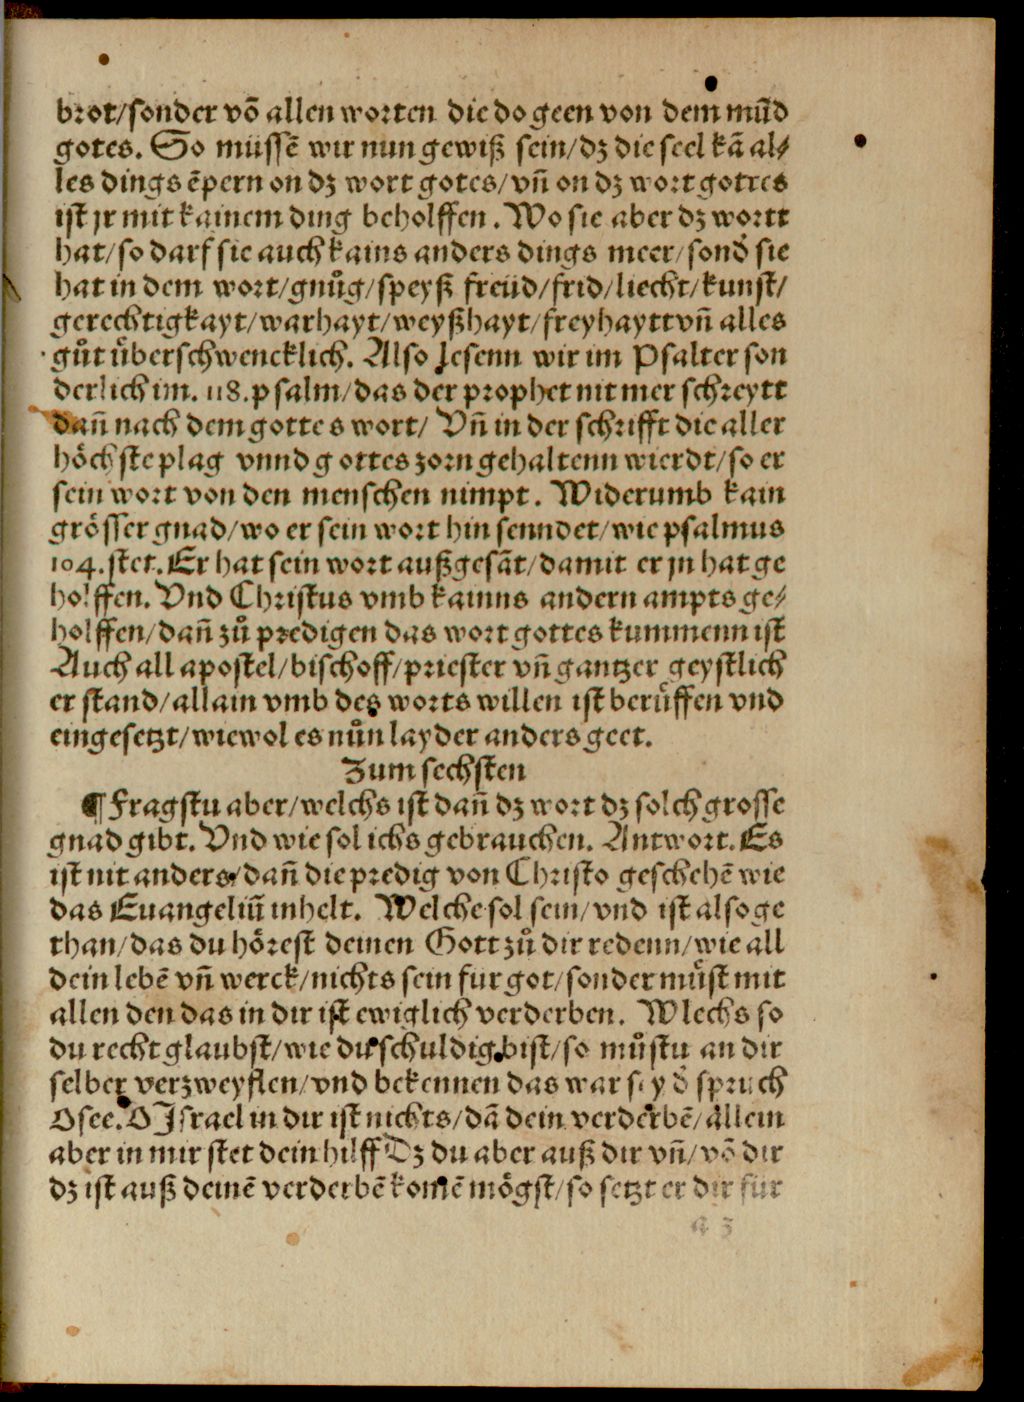 brot/sonder võ allen worten die do geen von dem mũd
gotes. So müssẽ wir nun gewiß sein/dz die seel kã al⸗
les dings ẽpern on dz wort gotes/vñ on dz wort gottes
ist jr mit kainem ding beholffen. Wo sie aber dz wortt
hat/so darf sie auch kains anders dings meer/sond̕ sie
hat in dem wort/gnůg/speyß freüd/frid/liecht/kunst/
gerechtigkayt/warhayt/weyßhayt/freyhaytt vñ alles
gůt überschwencklich. Also lesenn wir im Psalter son
derlich im. 118. psalm/das der prophet nit mer schreytt
dañ nach dem gottes wort/ Vñ in der schrifft die aller
höchste plag vnnd gottes zorn gehaltenn wierdt/so er
sein wort von den menschen nimpt. Widerumb kain
grösser gnad/wo er sein wort hin senndet/wie psalmus
104. stet. Er hat sein wort außgesãt/damit er jn hat ge
holffen. Vnd Christus vmb kainns andern ampts ge⸗
holffen/dañ zů predigen das wort gottes kummenn ist
Auch all apostel/bischoff/priester vñ gantzer geystlich
er stand/allain vmb des worts willen ist berůffen vnd
eingesetzt/wiewol es nůn layder anders geet.
Zum sechsten
¶ Fragstu aber/welchs ist dañ dz wort dz solch grosse
gnad gibt. Vnd wie sol ichs gebrauchen. Antwort. Es
ist nit anders/dañ die predig von Christo geschehẽ wie
das Euangeliũ inhelt. Welche sol sein/vnd ist also ge
than/das du hörest deinen Gott zů dir redenn/wie all
dein lebẽ vñ werck/nichts sein fur got/sonder můst mit
allen den das in dir ist ewiglich verderben. Wlechs so
du recht glaubst/wie du schuldig bist/so můstu an dir
selber verzweyflen/vnd bekennen das war sey d̕ spruch
Osee. O Israel in dir ist nichts/dã dein verderbẽ/allein
aber in mir stet dein hilff Dz du aber auß dir vñ/võ dir
dz ist auß deinẽ verderbẽ komẽ mögst/so setzt er dir für
a 3